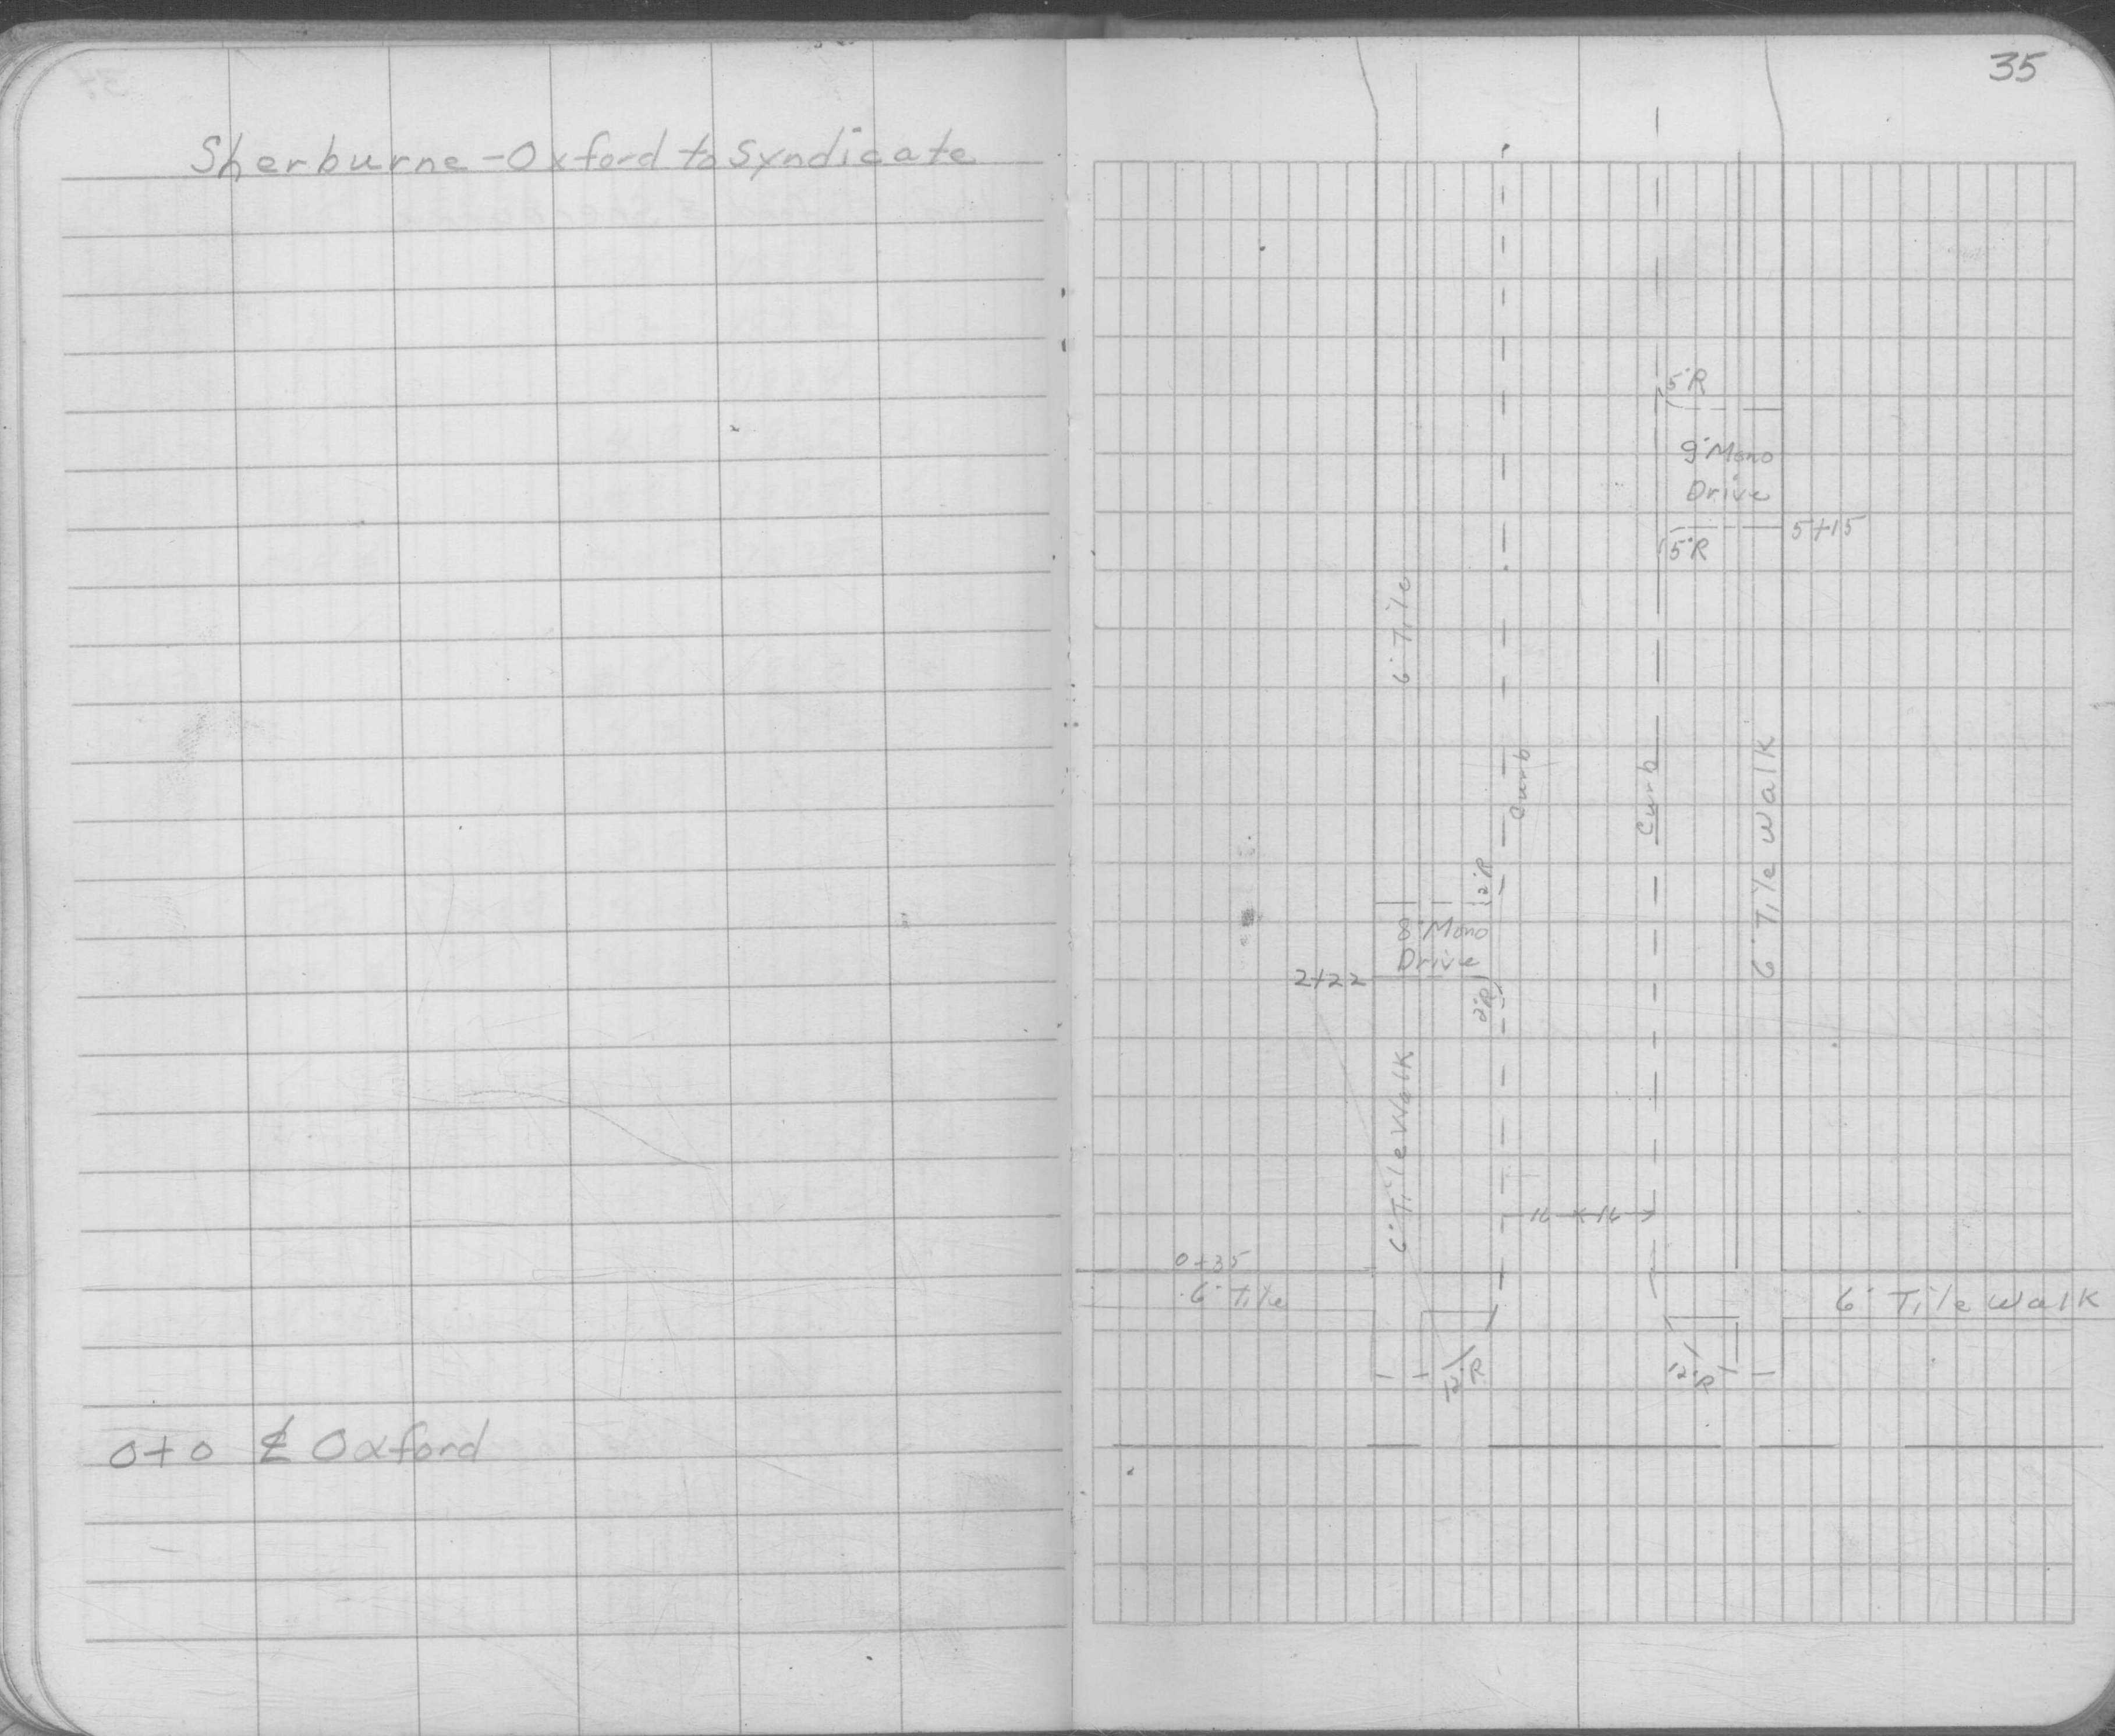 35
Sherburne - Oxford to Syndicate
5'R
9' Mono
Drive
5+15
5'R
6' Tile
Curb
Curb
6' Tile Walk
2'R
8' Mono
Drive
2+22
2'R
6' Tile Walk
16 16
0+35
6' Tile
6' Tile Walk
12'R
12'R
0+0 ℄ Oxford